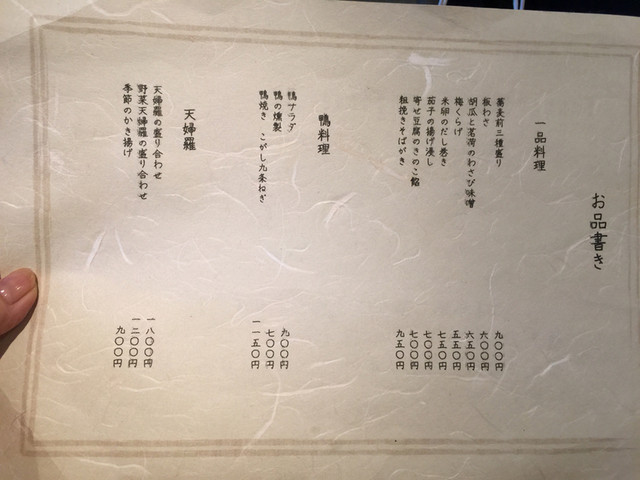 お品書き
一品料理
蕎麦前三種盛り 九〇〇円
板わさ 六〇〇円
胡瓜と茗荷のわさび味噌 六五〇円
梅くらげ 五五〇円
米卵のだし巻き 七五〇円
茄子の揚げ浸し 七〇〇円
寄せ豆腐のきのこ餡 七〇〇円
粗挽きそばがき 九五〇円
鴨料理
鴨サラダ 九〇〇円
鴨の燻製 七〇〇円
鴨焼き こがし九条ねぎ 一一五〇円
天婦羅
天婦羅の盛り合わせ 一八〇〇円
野菜天婦羅の盛り合わせ 一二〇〇円
季節のかき揚げ 九〇〇円